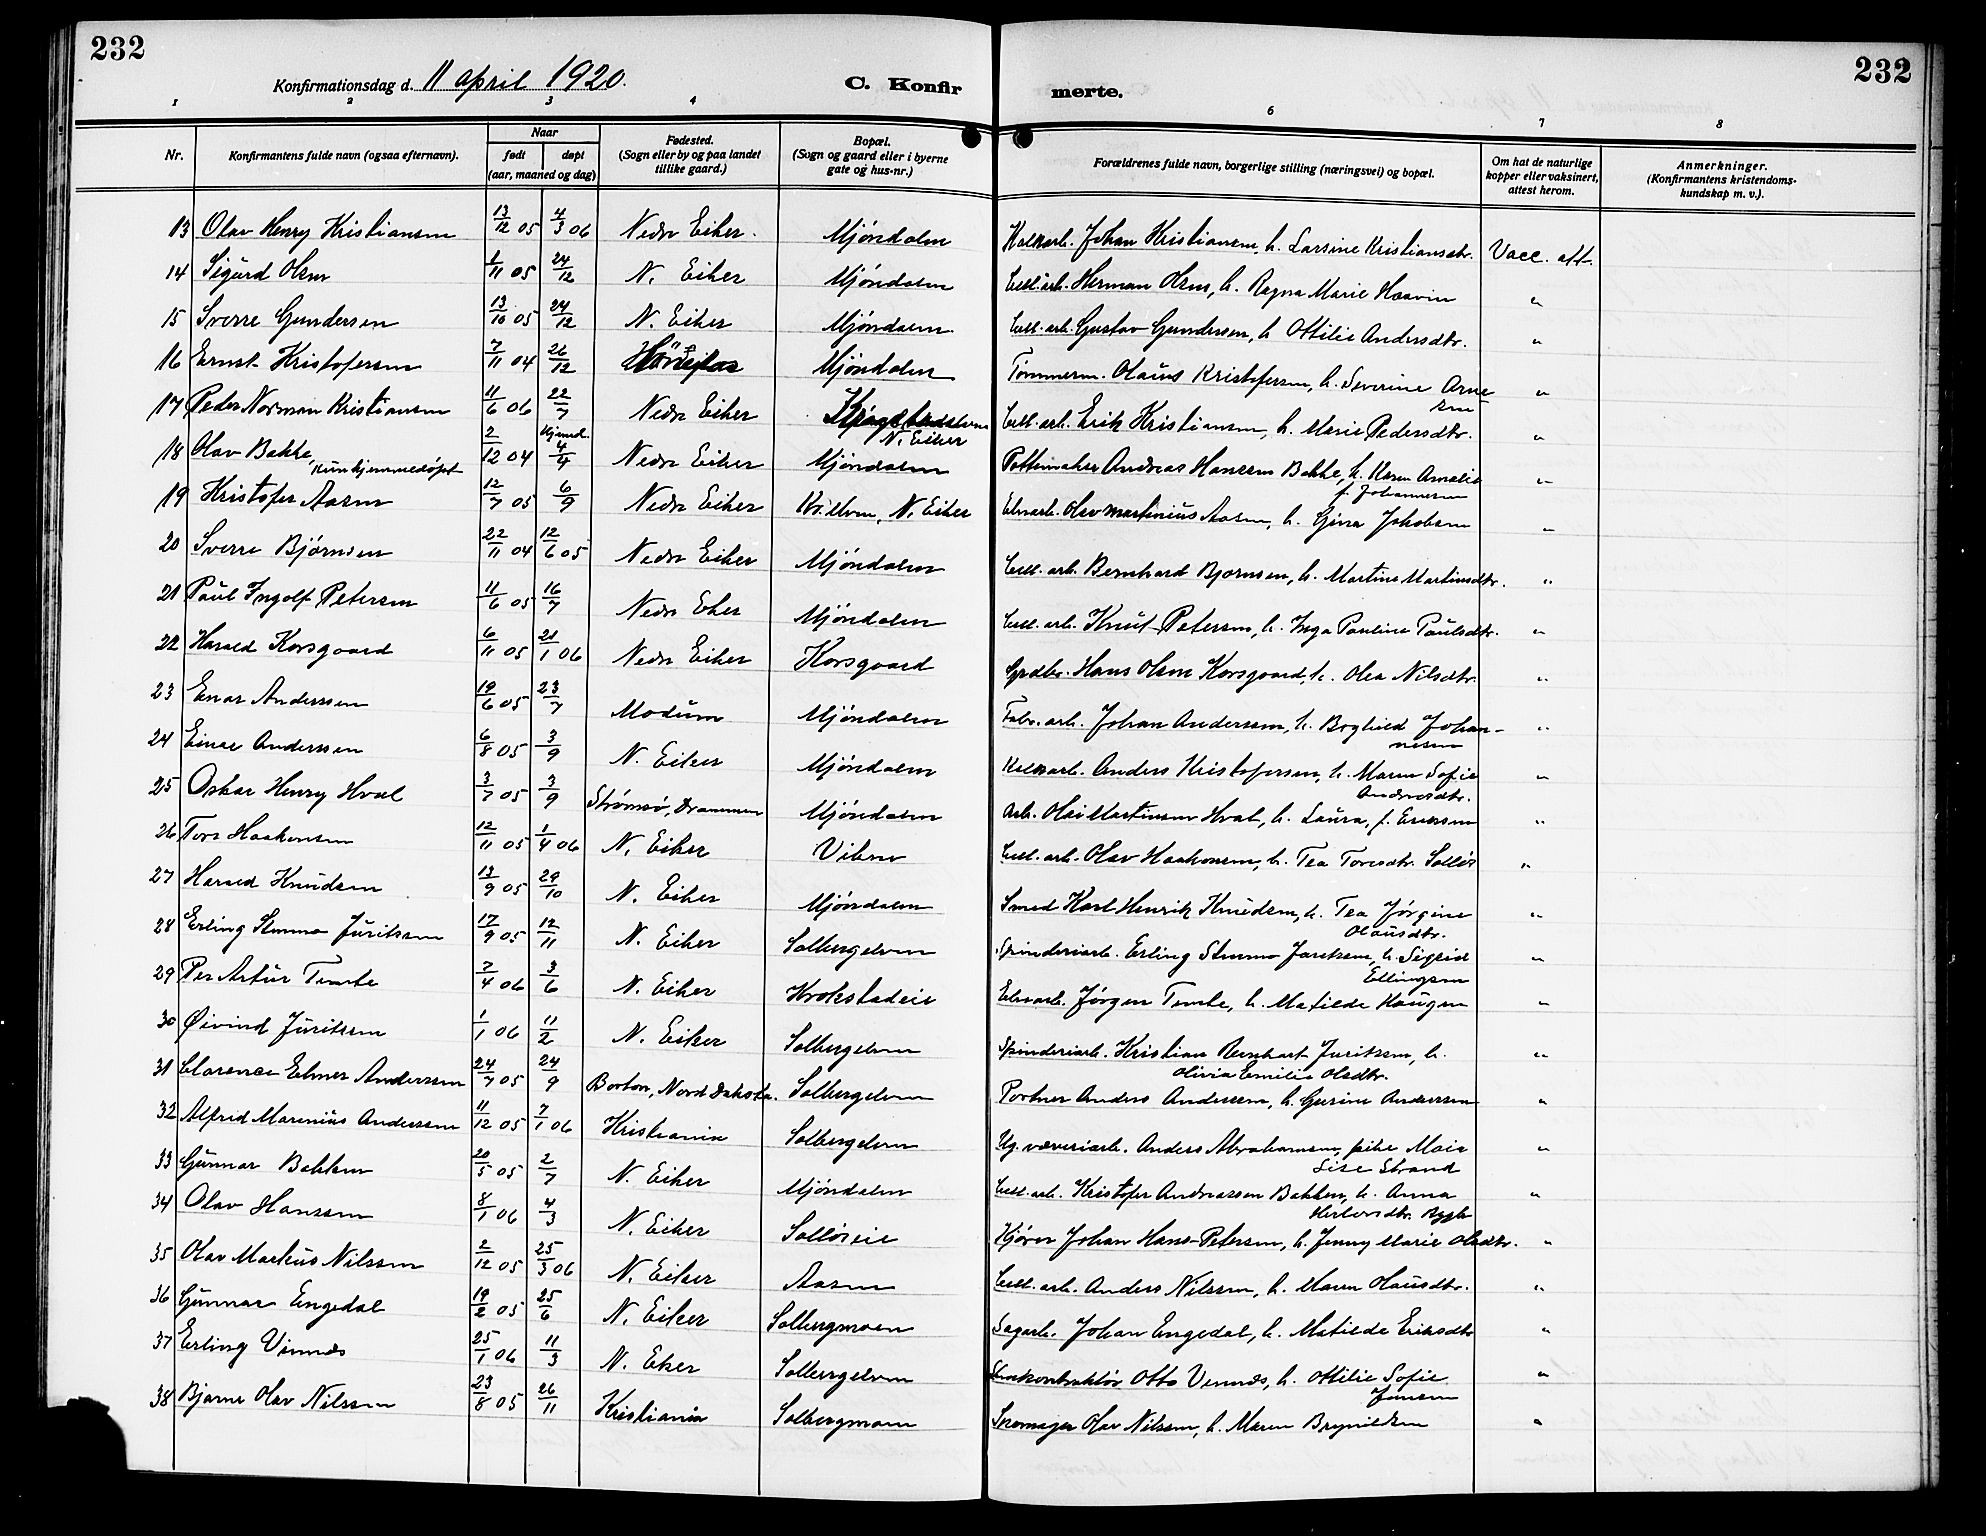 232
232
Konfirmationsdag d. 11 april 1920.
C. Konfirmerte.
1 2 3 4 6 7 8
Nr. Konfirmantens fulde navn (ogsaa efternavn). Naar født døpt (aar, maaned og dag) Fødested. (Sogn eller by og paa landet tillike gaard.) Bopæl. (Sogn og gaard eller i byerne gate og hus-nr.) Forældrenes fulde navn, borgerlige stilling (næringsvei) og bopæl. Om hat de naturlige kopper eller vaksinert, attest herom. Anmerkninger. (Konfirmantens kristendomskundskap m. v.).
13 Olav Henry Kristiansen 13/12 05 4/3 06 Nedre Eiker. Mjøndalen Johan Kristiansen, h. Larsine Kristiansdtr. Vacc. att.
14 Sigurd Olsen 1/11 05 24/12 N. Eiker Mjøndalen Cell. arb. Herman Olsen, h. Ragna Marie Haavin "
15 Sverre Gundersen 13/10 05 24/12 N. Eiker Mjøndalen Cell. arb. Gustav Gundersen, h. Ottilie Andersdtr. "
16 Ernst Kristofersen 7/11 04 26/12 Mjøndalen Tømmerm. Olaus Kristofersen, h. Severine Arnesen "
17 Peder Norman Kristiansen 11/6 06 22/7 Nedre Eiker N. Eiker Cell. arb. Erik Kristiansen, h. Marie Pedersdtr. "
18 Olav Bakke, kun hjemmedøpt 2/12 04 hjemmed. 4/4 Nedre Eiker Mjøndalen Pottemaker Andreas Hansen Bakke, h. Karen Amalie f. Johannesen "
19 Kristofer Aasen 12/7 05 6/9 Nedre Eiker Kr. elven, N. Eiker Olav Martinius Aasen, h. Gina Jakobsen "
20 Sverre Bjørnsen 22/11 04 12/6 05 Nedre Eiker Mjøndalen Cell. arb. Bernhard Bjørnsen, h. Martine Martinsdtr. "
21 Paul Ingolf Petersen 11/6 05 16/7 Nedre Eker Mjøndalen Cell. arb. Knut Petersen, h. Inga Pauline Paulsdtr. "
22 Harald Korsgaard 6/11 05 21/1 06 Nedre Eiker Korsgaard Grdbr. Hans Olsen Korsgaard, h. Olea Nilsdtr. "
23 Einar Anderssen 19/6 05 23/7 Modum Mjøndalen Fabr. arb. Johan Anderssen, h. Johannesen "
24 Einar Anderssen 6/8 05 3/9 N. Eiker Mjøndalen Anders Kristofersen, h. Maren Sofie Andersdtr. "
25 Oskar Henry Hval 3/7 05 3/9 Strømsø, Drammen Mjøndalen Arb. Ole Martinsen Hval, h. Laura, f. Eriksen "
26 Tore Haakensen 12/11 05 1/4 06 N. Eiker Cell. arb. Olav Haakensen, h. Tea Toresdtr. "
27 Harald Knudsen 13/9 05 29/10 N. Eiker Mjøndalen Smed Karl Henrik Knudsen, h. Tea Jørgine Olausdtr. "
28 Erling Juritsen 17/9 05 12/11 N. Eiker Solbergelven Spinderiarb. Erling Juritsen, h. Sigrid Ellingsen "
29 Per Artur Temte 7/4 06 3/6 N. Eiker Krokstadeie Jørgen Temte, h. Matilde Haugen "
30 Øivind Juritsen 1/1 06 11/2 N. Eiker Solbergelven Spinderiarb. Kristian Juritsen, h. Olivia Emilie Olsdtr. "
31 Clarence Elmer Anderssen 24/7 05 24/9 Nord Dakota. Solbergelven Portner Anders Anderssen, h. Gusine Anderssen "
32 Alfrid Marenius Anderssen 11/12 05 7/1 06 Kristiania Solbergelven Ug. væveriarb. Anders Abrahamsen, pike Strand "
33 Gunnar Bakken 20/5 05 2/7 N. Eiker Mjøndalen Cell. arb. Kristofer Andreassen Bakken, h. Anna "
34 Olav Hanssen 8/1 06 4/3 N. Eiker Kjører Johan Hans-Petersen, h. Jenny Marie Olsdtr. "
35 Olav Markus Nilssen 2/12 05 25/3 06 N. Eiker Aasen Cell. arb. Anders Nilssen, h. Maren Olausdtr. "
36 Gunnar Engedal 19/2 05 25/6 N. Eiker Solbergmoen Sagarb. Johan Engedal, h. Matilde Eriksdtr "
37 Erling Vinnes 25/1 06 11/3 N. Eker Solbergelven Otto Vinnes, h. Ottilie Sofie Jensen "
38 Bjarne Olav Nilssen 23/8 05 26/11 Kristiania Solbergmoen Skomager Olav Nilssen, h. Maren Brynildsen "